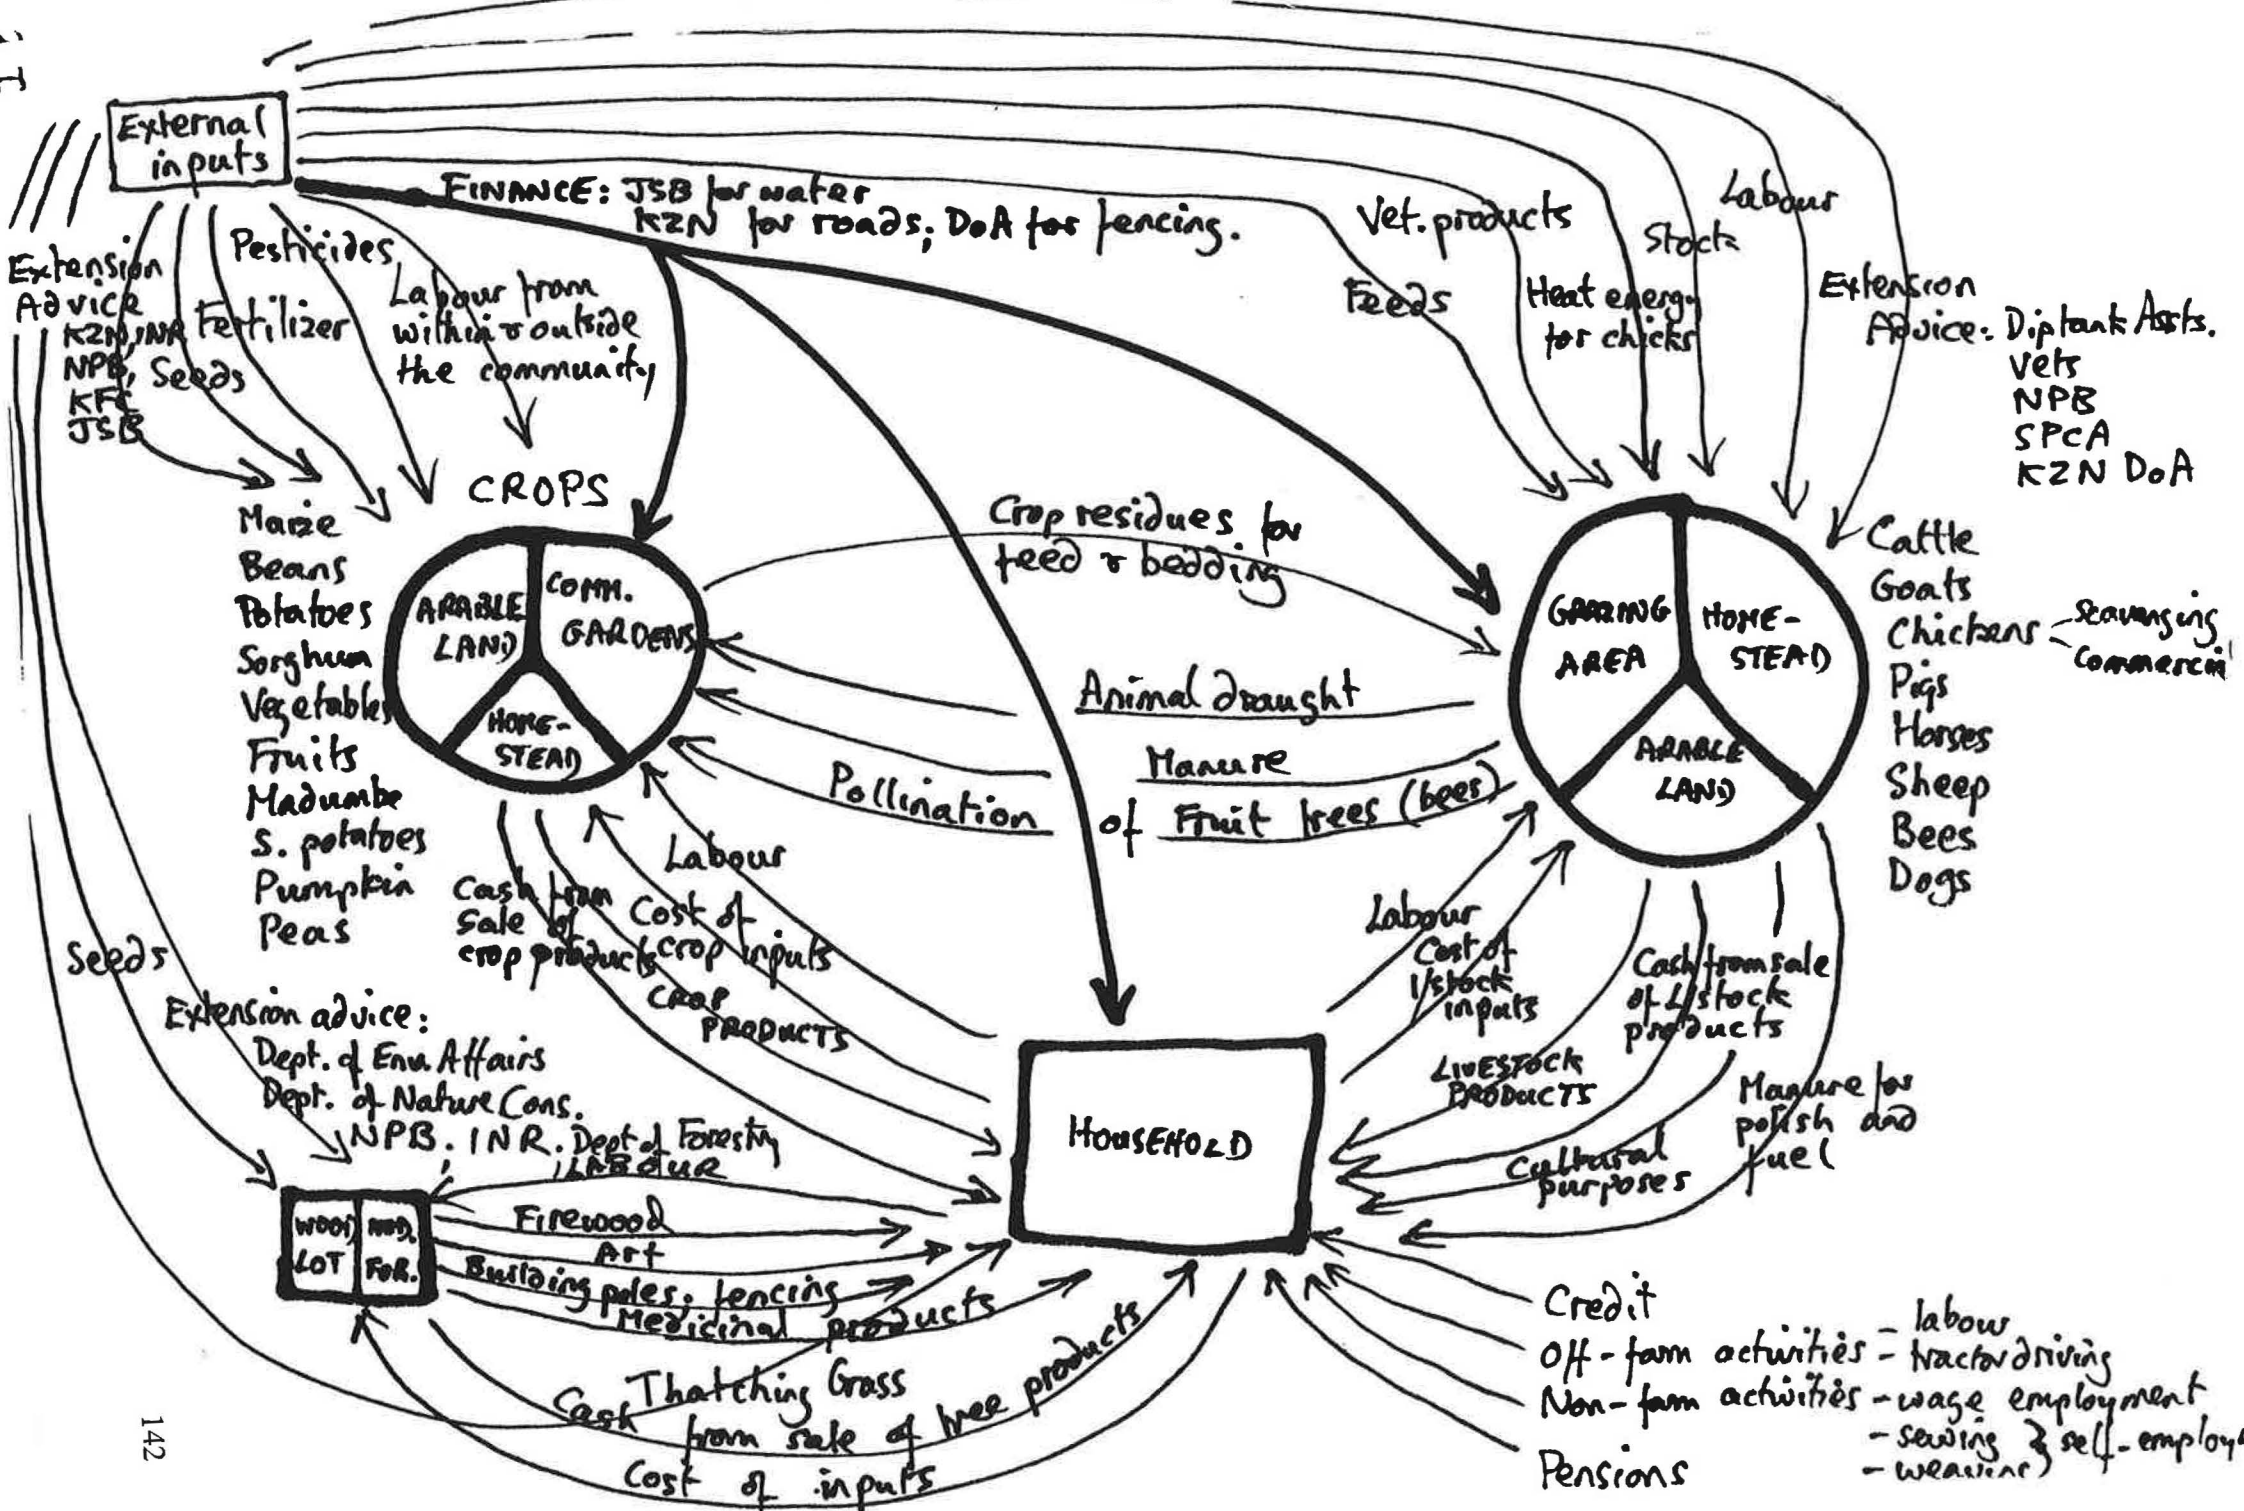 External
inputs
FINANCE: JSB for water
KZN for roads; DoA for fencing.
Extension
Advice
KZN, INR
NPB,
KFC
JSB
Pesticides
Fertilizer
Seeds
Labour from
within & outside
the community
Vet. products
Feeds
Heat energy
for chicks
Stock
Labour
Extension
Advice: Diptank Assts.
Vets
NPB
SPCA
KZN DoA
CROPS
Maize
Beans
Potatoes
Sorghum
Vegetables
Fruits
Madumbe
S. potatoes
Pumpkin
Peas
ARABLE
LAND
COMM.
GARDENS
HOME-
STEAD
Crop residues for
feed & bedding
Animal draught
Manure
Pollination of Fruit trees (bees)
GRAZING
AREA
HOME-
STEAD
ARABLE
LAND
Cattle
Goats
Chickens - Scavanging
- Commercial
Pigs
Horses
Sheep
Bees
Dogs
Labour
Cost of
crop inputs
Cash from
Sale of
crop products
CROP
PRODUCTS
Labour
Cost of
l/stock
inputs
Cash from sale
of L/stock
products
LIVESTOCK
PRODUCTS
Manure for
polish and
fuel
Cultural
purposes
HOUSEHOLD
Seeds
Extension advice:
Dept. of Env. Affairs
Dept. of Nature Cons.
NPB, INR, Dept of Forestry
LABOUR
WOOD
LOT
IND.
FOR.
Firewood
Art
Building poles; fencing
Medicinal products
Thatching Grass
Cash from sale of tree products
Cost of inputs
Credit
Off-farm activities - labour
- tractor driving
Non-farm activities - wage employment
- sewing } self-employ
- weaving
Pensions
142